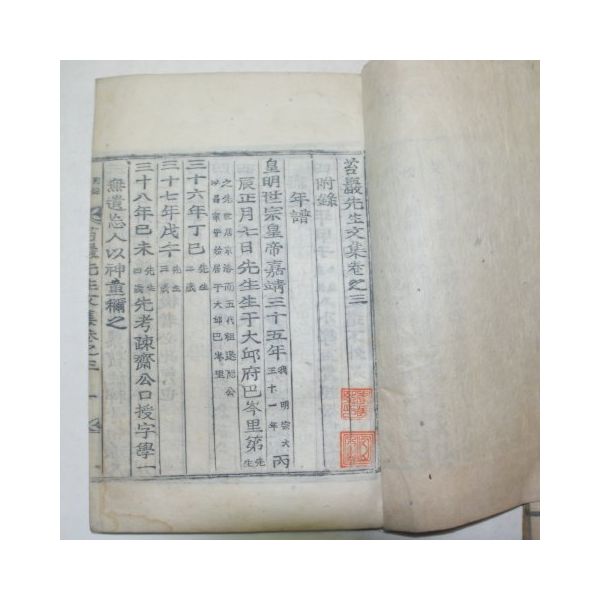 苔巖先生文集卷之三
附錄
年譜
皇明世宗皇帝嘉靖三十五年我 明宗大三十一年丙
辰正月七日先生生于大邱府巴岑里第先生
之先世居京洛而五代祖退隱公
三十六年丁巳先生二歲
三十七年戊午先生三歲
三十八年己未先生四歲先考疎齋公口授字學一
無遺忘人以神童稱之
先生文集卷之三 一